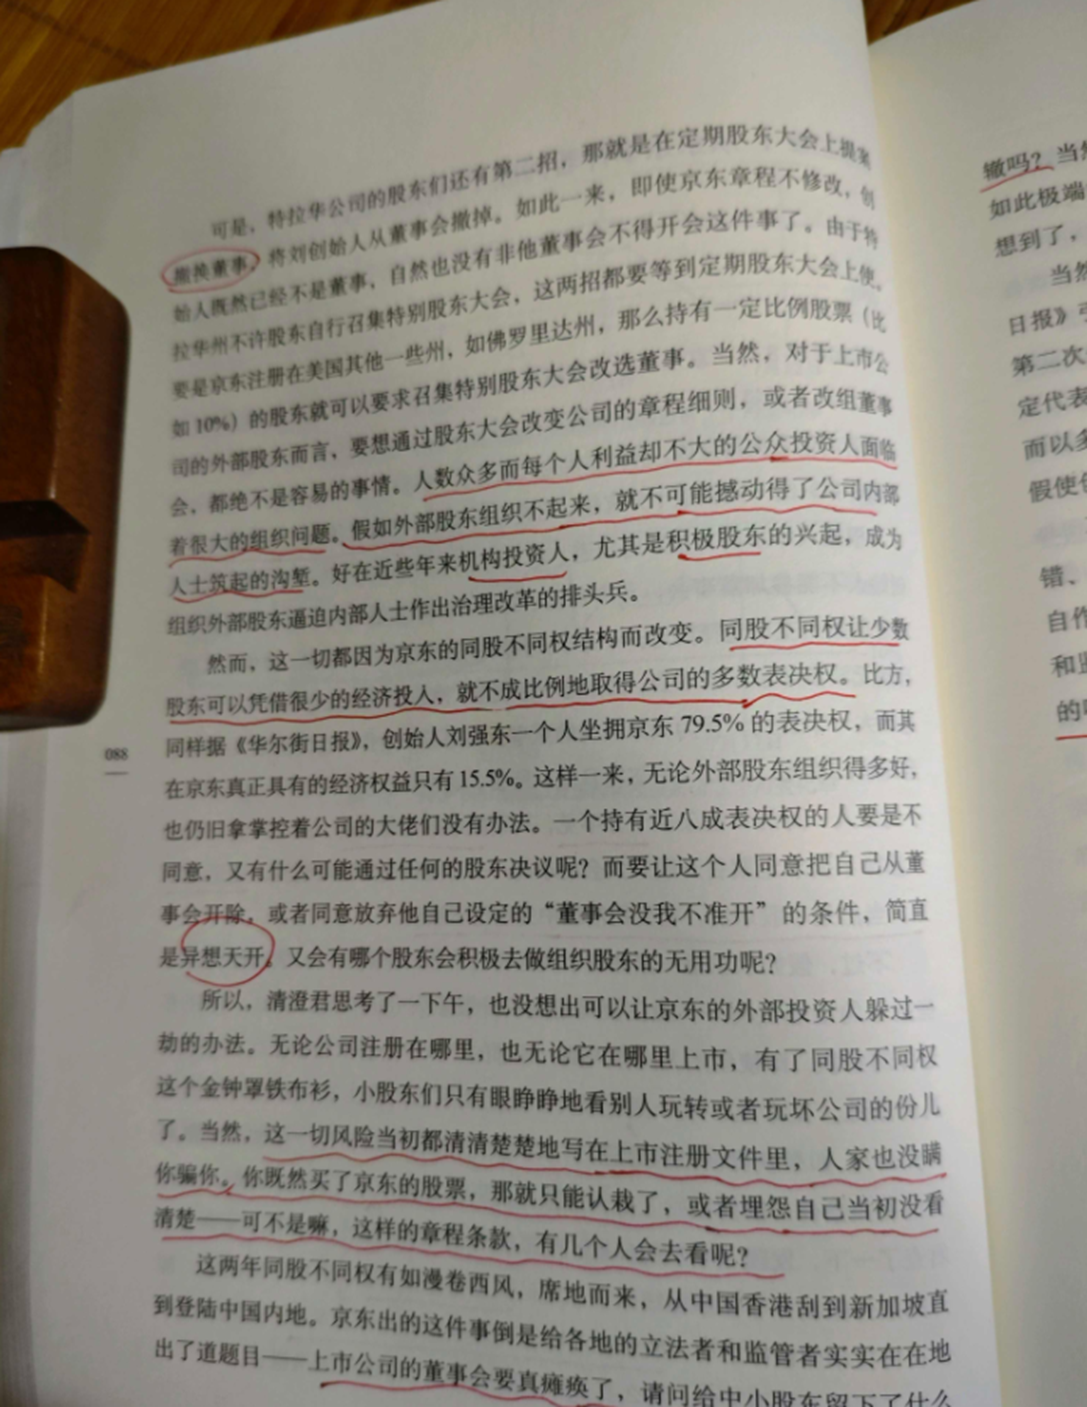 可是，特拉华公司的股东们还有第二招，那就是在定期股东大会上提案
撤换董事，将刘创始人从董事会撤掉。如此一来，即使京东章程不修改，创
始人既然已经不是董事，自然也没有非他董事会不得开会这件事了。由于特
拉华州不许股东自行召集特别股东大会，这两招都要等到定期股东大会上使。
要是京东注册在美国其他一些州，如佛罗里达州，那么持有一定比例股票（比
如10%）的股东就可以要求召集特别股东大会改选董事。当然，对于上市公
司的外部股东而言，要想通过股东大会改变公司的章程细则，或者改组董事
会，都绝不是容易的事情。人数众多而每个人利益却不大的公众投资人面临
着很大的组织问题。假如外部股东组织不起来，就不可能撼动得了公司内部
人士筑起的沟堑。好在近些年来机构投资人，尤其是积极股东的兴起，成为
组织外部股东逼迫内部人士作出治理改革的排头兵。
然而，这一切都因为京东的同股不同权结构而改变。同股不同权让少数
股东可以凭借很少的经济投入，就不成比例地取得公司的多数表决权。比方，
同样据《华尔街日报》，创始人刘强东一个人坐拥京东79.5%的表决权，而其
在京东真正具有的经济权益只有15.5%。这样一来，无论外部股东组织得多好，
也仍旧拿掌控着公司的大佬们没有办法。一个持有近八成表决权的人要是不
同意，又有什么可能通过任何的股东决议呢？而要让这个人同意把自己从董
事会开除，或者同意放弃他自己设定的“董事会没我不准开”的条件，简直
是异想天开。又会有哪个股东会积极去做组织股东的无用功呢？
所以，清澄君思考了一下午，也没想出可以让京东的外部投资人躲过一
劫的办法。无论公司注册在哪里，也无论它在哪里上市，有了同股不同权
这个金钟罩铁布衫，小股东们只有眼睁睁地看别人玩转或者玩坏公司的份儿
了。当然，这一切风险当初都清清楚楚地写在上市注册文件里，人家也没瞒
你骗你。你既然买了京东的股票，那就只能认栽了，或者埋怨自己当初没看
清楚——可不是嘛，这样的章程条款，有几个人会去看呢？
这两年同股不同权有如漫卷西风，席地而来，从中国香港刮到新加坡直
到登陆中国内地。京东出的这件事倒是给各地的立法者和监管者实实在在地
出了道题目——上市公司的董事会要真瘫痪了，请问给中小股东留下了什么
088
辙吗？当然
如此极端
想到了，
当然
日报》
第二次
定代表
而以多
假使
错、
自作
和
的